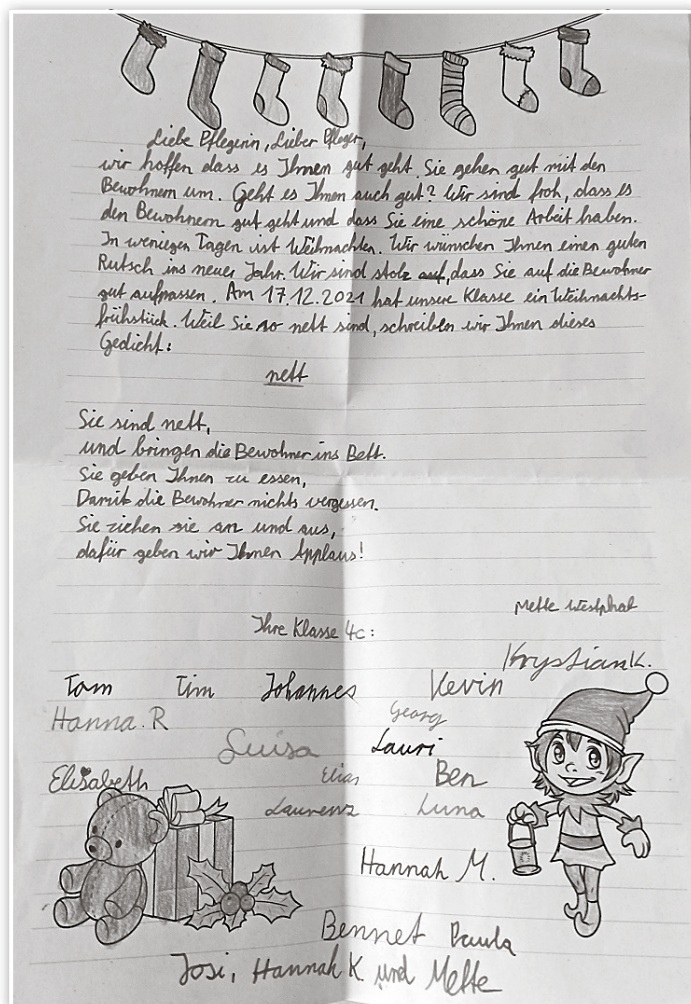 Liebe Pflegerin, Lieber Pfleger,
wir hoffen dass es Ihnen gut geht. Sie gehen gut mit den
Bewohnern um. Geht es Ihnen auch gut? Wir sind froh, dass es
den Bewohnern gut geht und dass Sie eine schöne Arbeit haben.
In weniegen Tagen ist Weihnachten. Wir wünschen Ihnen einen guten
Rutsch ins neuer Jahr. Wir sind stolz auf, dass Sie auf die Bewohner
gut aufpassen. Am 17.12.2021 hat unsere Klasse ein Weihnachts-
frühstück. Weil Sie so nett sind, schreiben wir Ihnen dieses
Gedicht:
nett
Sie sind nett,
und bringen die Bewohner ins Bett.
Sie geben Ihnen zu essen,
Damit die Bewohner nichts vergessen.
Sie ziehen sie an und aus,
dafür geben wir Ihnen Applaus!
Mette Westphal
Ihre Klasse 4c:
Krystian K.
Tom Tim Johannes Kevin
Hanna. R Georg
Luisa Lauri
Elisabeth Elias Ben
Laurenz Luna
Hannah M.
Bennet Paula
Josi, Hannah K und Mette